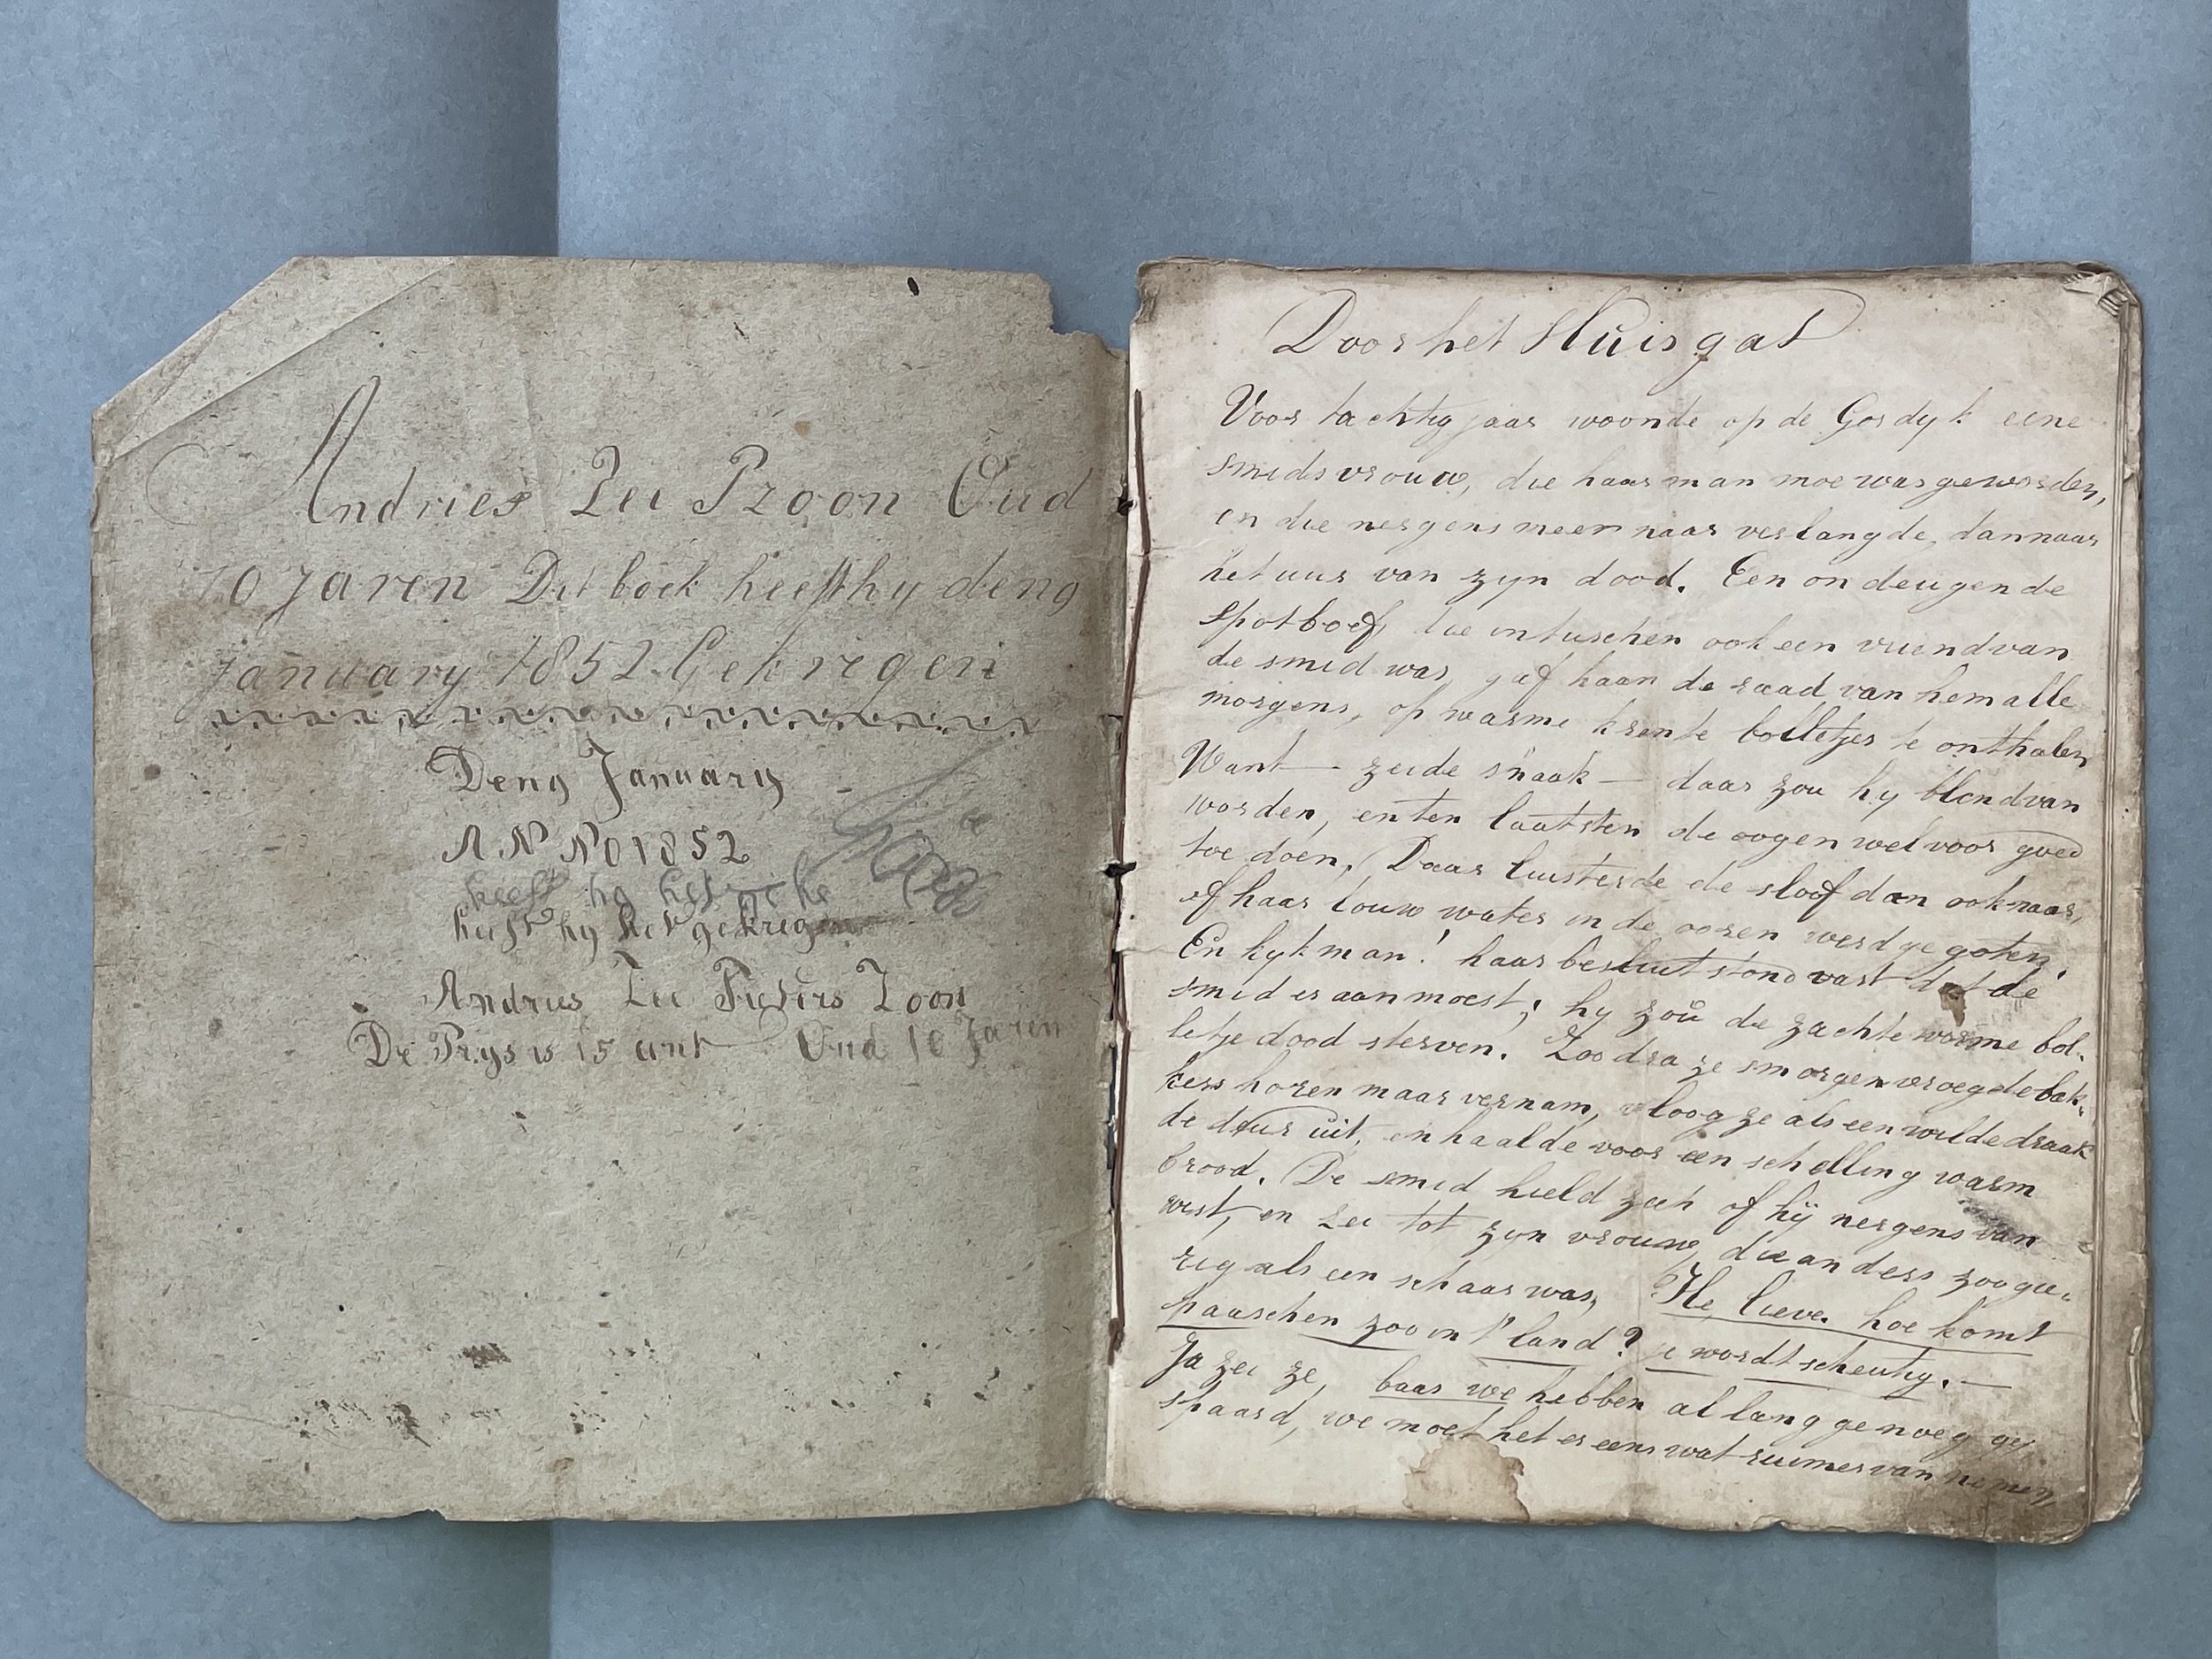 Andries Zei P Zoon Oud
10 Jaren Dit boek heeft hy den 9
January 1852 Gekregen
Den 9 January
A N N 0 1852
heeft hy het
heeft hy het gekregen
Andries Zei Pieters Zoon
De Prys is 15 cent Oud 10 Jaren
Door het Sluisgat
Voor tachtig jaar woonde op de Gordyk eene
smids vrouw, die haar man moe was geworden,
en die nergens meer naar verlangde, dan naar
het uur van zyn dood. Een ondeugende
spotboef, die intuschen ook een vriend van
de smid was, gaf haar de raad van hem alle
morgens, op warme krente bolletjes te onthalen
Want — zeide snaak — daar zou hy blend van
worden, en ten laatsten de oogen wel voor goed
toe doen. Daar luisterde de sloof dan ook naar,
of haar louw water in de ooren werd gegoten.
En kyk man! haar besluit stond vast dat de
smid er aan moest; hy zou de zachte warme bol-
letje dood sterven. Zoodra ze smorgen vroeg de bak-
kers horen maar vernam, vloog ze als een wilde draak
de deur uit, en haalde voor een schelling warm
brood. De smid hield zich of hij nergens van
wist, en zei tot zyn vrouw, die anders zoo gie-
rig als een schaar was, He, lieve. hoe komt
paaschen zoo in t' land? je wordt scheutig. —
Ja zei ze, baas we hebben al lang genoeg ge-
spaard, we moet het er eens wat ruimer van nemen,